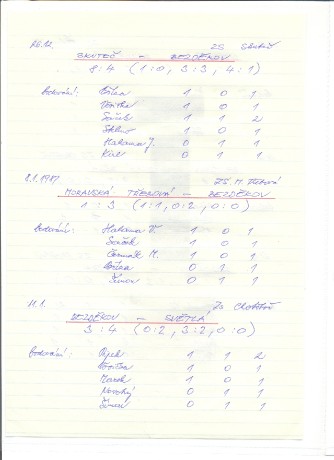 ZS Skuteč
SKUTEČ - BEZDĚKOV
8:4 (1:0, 3:3, 4:1)
Bodování: 1 0 1
1 0 1
Saček 1 1 2
1 0 1
Hakama J. 0 1 1
Kal 0 1 1
8.1.1987 ZŠ M. Třebová
MORAVSKÁ TŘEBOVÁ - BEZDĚKOV
1 : 3 (1:1, 0:2, 0:0)
Bodování: Hakama V. 1 0 1
Saček 1 0 1
Čermák M. 1 0 1
0 1 1
Šimon 0 1 1
11.1. ZS Chotěboř
BEZDĚKOV - SVĚTLÁ
3:4 (0:2, 3:2, 0:0)
Bodování: Pych 1 1 2
1 0 1
Marek 1 0 1
Novotný 0 1 1
Šimon 0 1 1